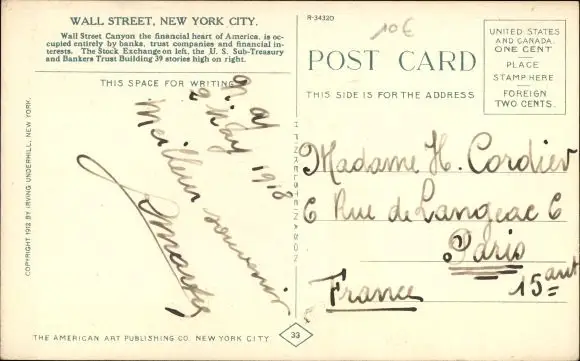 WALL STREET, NEW YORK CITY.
Wall Street Canyon the financial heart of America, is oc-
cupied entirely by banks, trust companies and financial in-
terests. The Stock Exchange on left, the U. S. Sub-Treasury
and Bankers Trust Building 39 stories high on right.
THIS SPACE FOR WRITING
N. Y.
9 May 1918
Meilleur souvenir
COPYRIGHT 1912 BY IRVING UNDERHILL, NEW YORK.
THE AMERICAN ART PUBLISHING CO. NEW YORK CITY
H. FINKELSTEIN & SON
33
R-34320
10€
POST CARD
THIS SIDE IS FOR THE ADDRESS
UNITED STATES
AND CANADA
ONE CENT
PLACE
STAMP HERE
FOREIGN
TWO CENTS.
Madame H. Cordier
6 Rue de Langeac 6
Paris
15
France